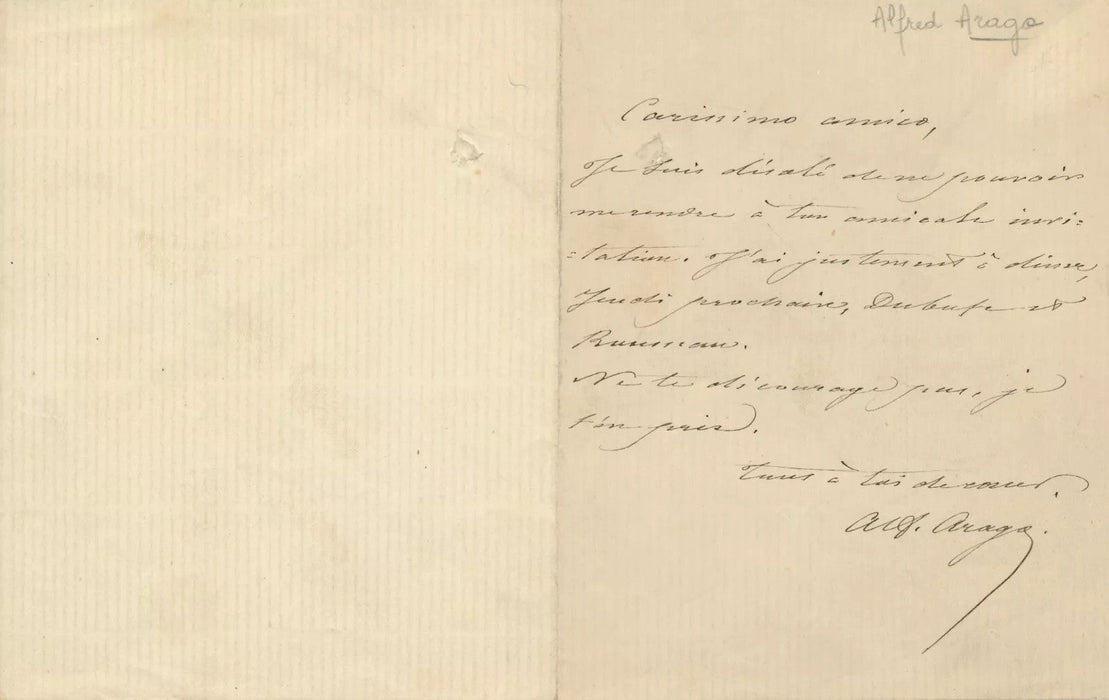 Alfred Arago
Carissimo amico,
Je suis désolé de ne pouvoir
me rendre à ton amicale invi=
=tation. J'ai justement à diner,
Jeudi prochain, Dubufe et
Rousseau.
Ne te décourage pas, je
t'en prie.
Tout à toi de coeur.
Alf. Arago.